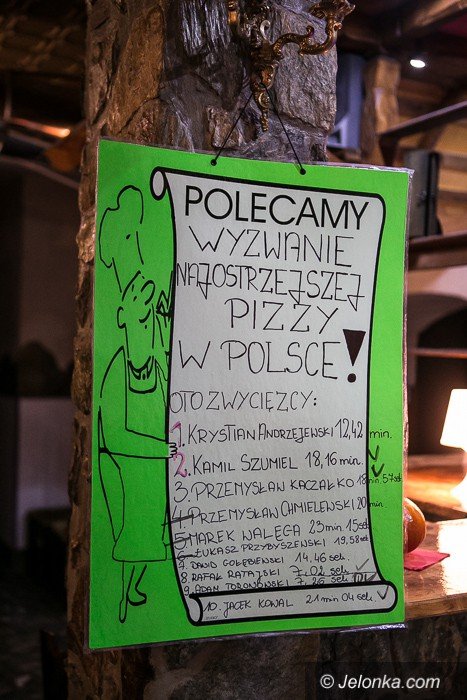 POLECAMY
WYZWANIE
NAJOSTRZEJSZEJ
PIZZY
W POLSCE!
OTO ZWYCIĘZCY:
1. KRYSTIAN ANDRZEJEWSKI 12,42 min.
2. KAMIL SZUMIEL 18,16 min.
3. PRZEMYSŁAW KACZAŁKO 18 min. 57 sek
4. PRZEMYSŁAW CHMIELEWSKI 20 min
5. MAREK WALĘGA 23 min 15 sek
ŁUKASZ PRZYBYSZEWSKI 19,58 sek
7. DAWID GOŁĘBIEWSKI 14,46 sek.
8 RAFAŁ RATAJSKI 7.02 sek
9. ADAM TORONOWSKI 7.26 sek
10. JACEK KOWAL 21 min 04 sek.
© Jelonka.com